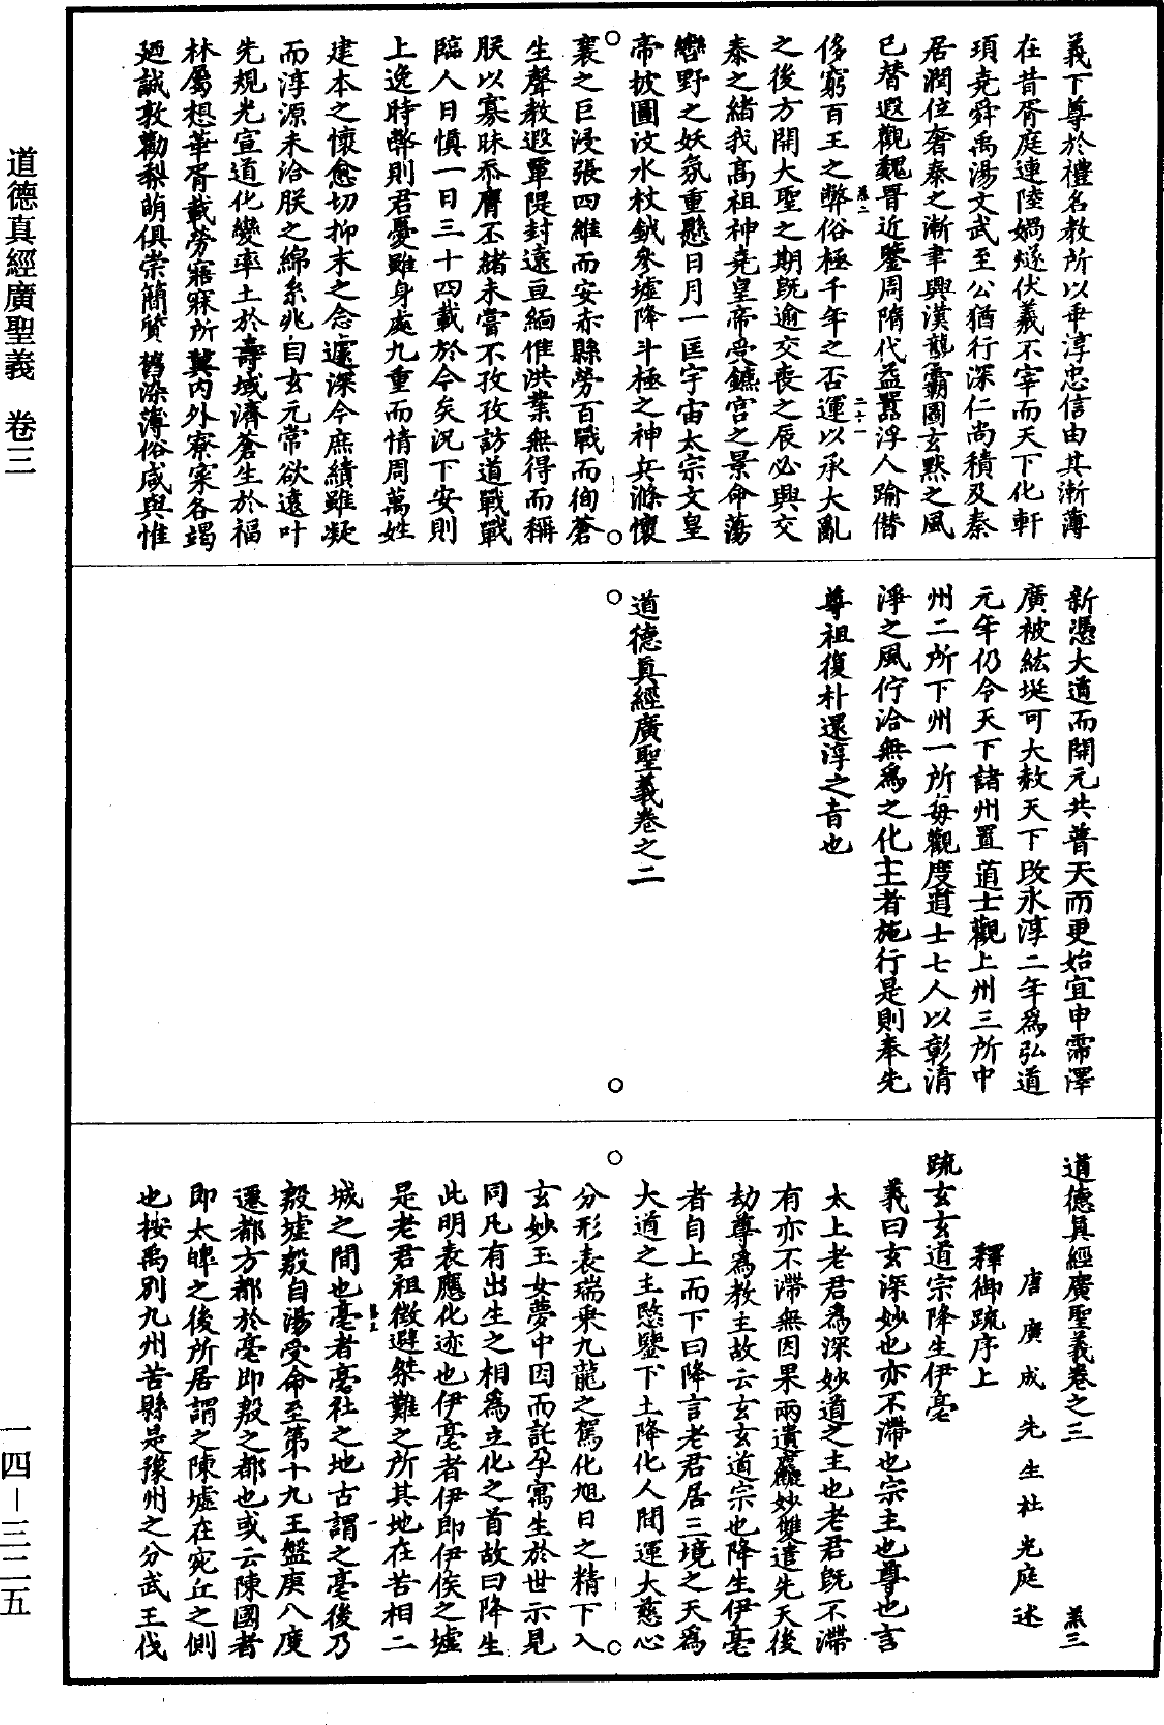 義下尊於禮名教所以乖淳忠信由其漸薄
在昔胥庭連陸媧燧伏羲不宰而天下化軒
頊堯舜禹湯文武至公猶行深仁尚積及秦
居潤位奢泰之漸聿興漢襲霸圖玄默之風
已替遐觀魏晉近鑒周隋代益囂浮人踰僭
侈窮百王之弊俗極千年之否運以承大亂
之後方開大聖之期既逾交喪之辰必興交
泰之緒我高祖神堯皇帝受籙宮之景命蕩
巒野之妖氛重懸日月一匡宇宙太宗文皇
帝披圖汶水杖鉞參墟降斗極之神兵滌懷
襄之巨浸張四維而安赤縣勞百戰而徇蒼
生聲教遐覃隄封遠亘緬惟洪業無得而稱
朕以寡昧忝膺丕緒未嘗不孜孜訪道戰戰
臨人日慎一日三十四載於今矣況下安則
上逸時弊則君憂雖身處九重而情周萬姓
建本之懷愈切抑末之念遽深今庶績雖凝
而淳源未洽朕之綿系兆自玄元常欲遠叶
先規光宣道化變率土於壽域濟蒼生於福
林屬想華胥載勞寤寐所冀內外寮寀各竭
迺誠敦勸梨萌俱崇簡質舊染薄俗咸與惟
卷二
二十一
新憑大道而開元共普天而更始宜申霈澤
廣被紘埏可大赦天下改永淳二年為弘道
元年仍令天下諸州置道士觀上州三所中
州二所下州一所每觀度道士七人以彰清
淨之風佇洽無為之化主者施行是則奉先
尊祖復朴還淳之旨也
道德真經廣聖義卷之二
道德真經廣聖義卷之三 羔三
唐廣成先生杜光庭述
釋御疏序上
疏玄玄道宗降生伊亳
義曰玄深妙也亦不滯也宗主也尊也言
太上老君為深妙道之主也老君既不滯
有亦不滯無因果兩遺麤妙雙遣先天後
劫尊為教主故云玄玄道宗也降生伊亳
者自上而下曰降言老君居三境之天為
大道之主愍鑒下土降化人間運大慈心
分形表瑞乘九龍之駕化旭日之精下入
玄妙玉女夢中因而託孕寓生於世示見
同凡有出生之相為立化之首故曰降生
此明表應化迹也伊亳者伊即伊侯之墟
是老君祖徵避桀難之所其地在苦相二
城之間也亳者亳社之地古謂之亳後乃
殷墟殷自湯受命至第十九王盤庚八度
遷都方都於亳即殷之都也或云陳國者
即太皞之後所居謂之陳墟在宛丘之側
也按禹別九州苦縣是豫州之分武王伐
道德真經廣聖義 卷三
一四－三二五